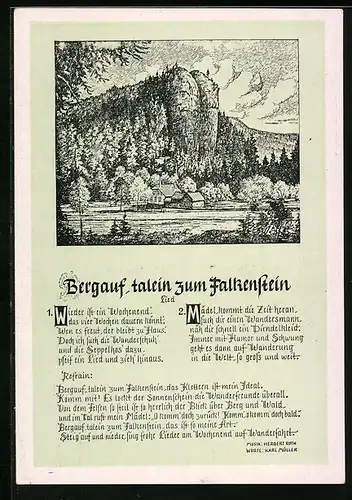 Bergauf, talein zum Falkenstein
Lied
1. Wieder ist ein "Wochenend",
das vier Wochen dauern könnt'.
Wen es freut, der bleibt zu Haus'.
Doch ich such die Wanderschuh'
und die Seppelhos' dazu,
pfeif ein Lied und zieh hinaus.
2. Mädel, kommt die Zeit heran,
such dir einen Wandersmann,
näh dir schnell ein Dirndelkleid;
Immer mit Humor und Schwung
geht es dann auf Wanderung
in die Welt, so groß und weit.
Refrain:
Bergauf, talein zum Falkenstein, das Klettern ist mein Ideal.
Komm mit! Es lockt der Sonnenschein die Wanderfreunde überall.
Von dem Felsen so steil ist so herrlich der Blick über Berg und Wald,
und im Tal ruft mein Mädel: „O komm doch zurück! Komm, o komm doch bald."
Bergauf, talein zum Falkenstein, das ist so meine Art.
Steig auf und nieder, sing frohe Lieder am Wochenend auf Wanderfahrt.
MUSIK: HERBERT ROTH
WORTE: KARL MÜLLER